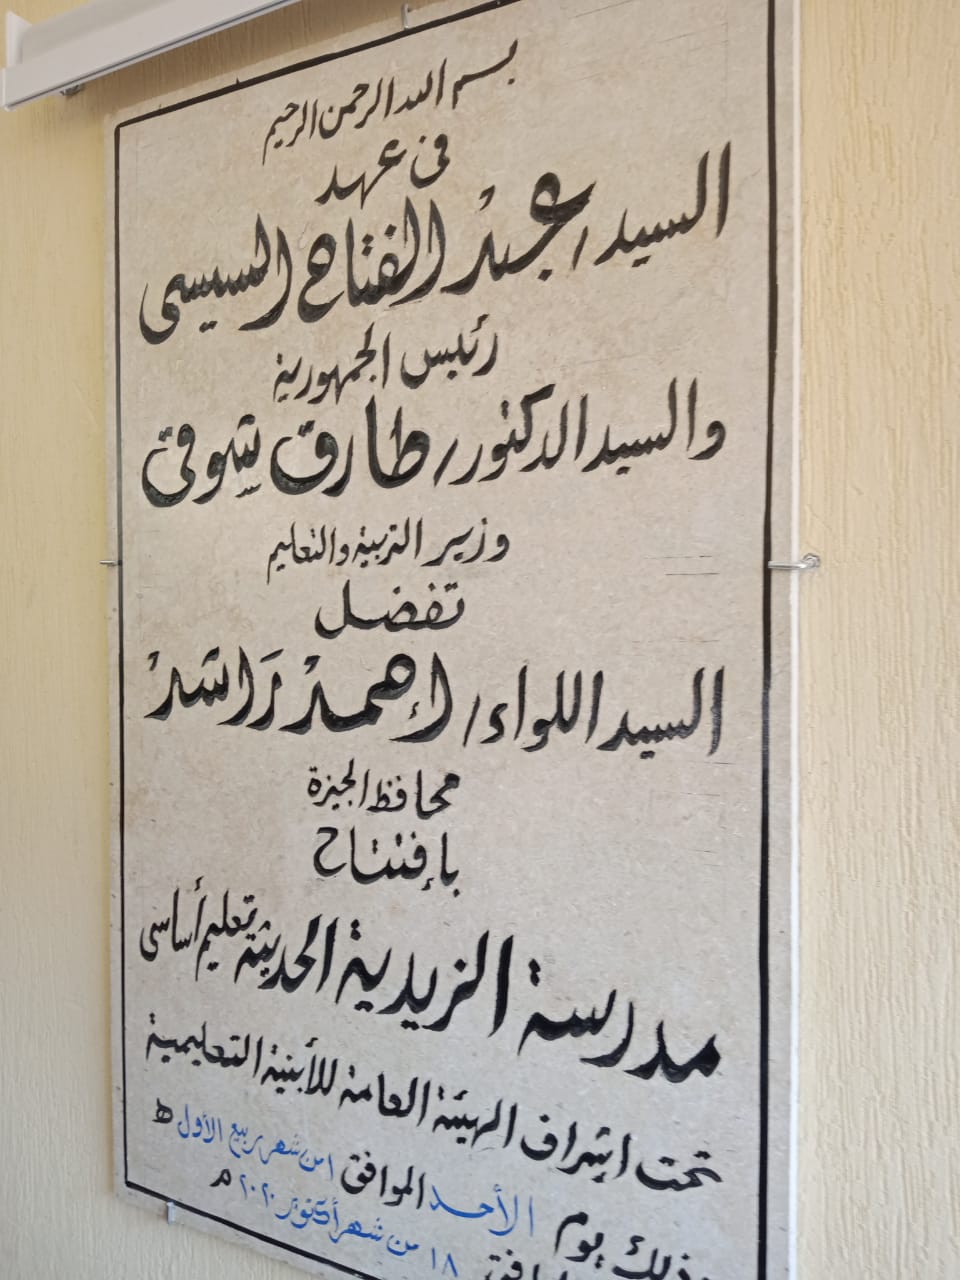 بسم الله الرحمن الرحيم
فى عهد
السيد/ عبد الفتاح السيسى
رئيس الجمهورية
والسيد الدكتور/ طارق شوقى
وزير التربية والتعليم
تفضل
السيد اللواء/ أحمد راشد
محافظ الجيزة
بإفتتاح
مدرسة الزيدية الحديثة تعليم أساسى
تحت إشراف الهيئة العامة للأبنية التعليمية
وذلك يوم الأحد الموافق ١ من شهر ربيع الأول هـ
١٨ من شهر أكتوبر ٢٠٢٠ م